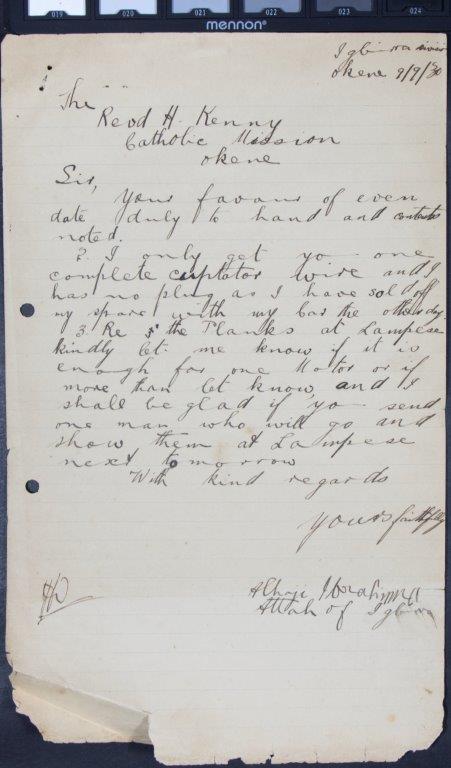 019 020 021 022 023 024
mennon
Igbirra
Okene 9/9/30
The
Revd H. Kenny
Catholic Mission
Okene
Sir,
Your favour of even
date duly to hand and contents
noted.
2. I only get yo one
complete wire and I
has no plug as I have sold off
my spare with my Car the other day
3. Re the Planks at Lampese
kindly let me know if it is
enough for one Motor or if
more than let know, and I
shall be glad if yo send
one man who will go and
show them at Lampese
next tomorrow
With kind regards
Yours faithfully
Alhaji Ibrahim
Attah of Igbirra